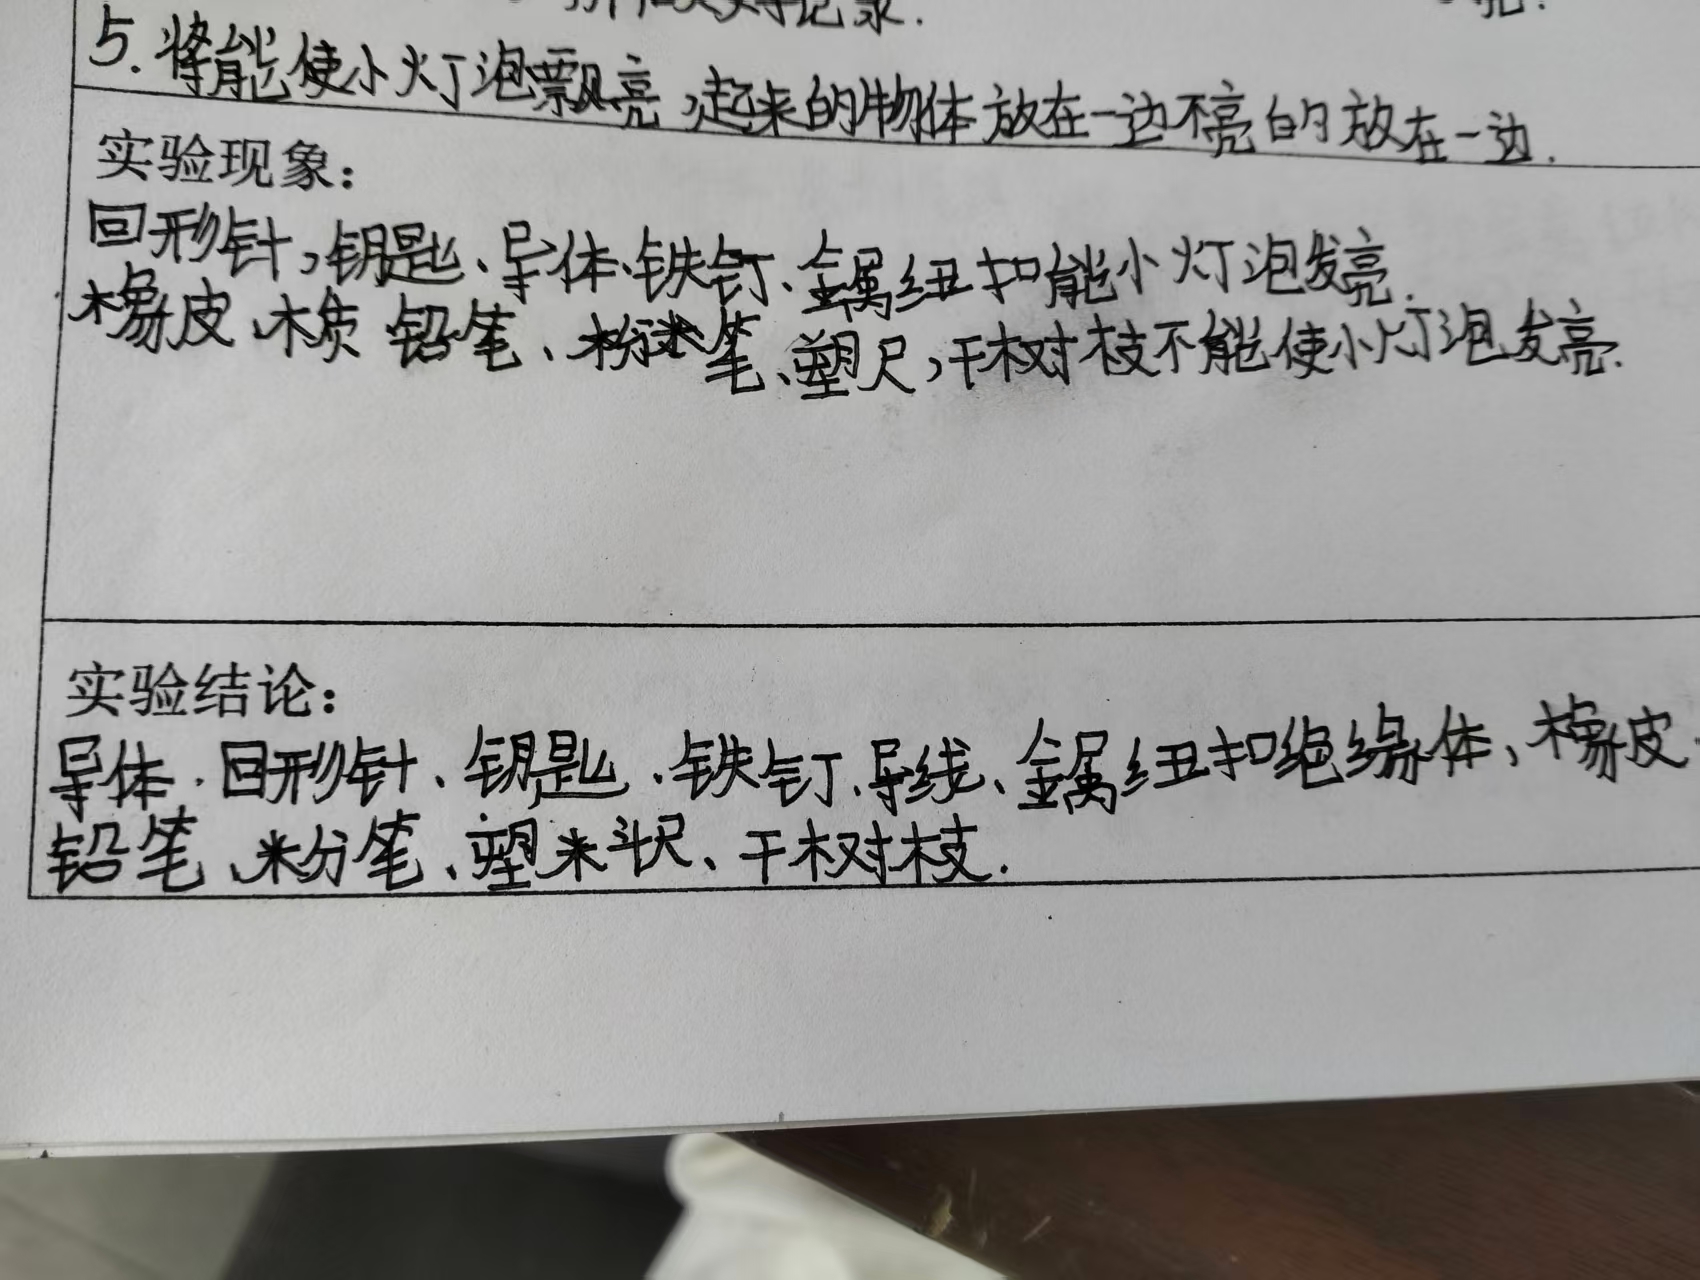 记录.
5. 将能使小灯泡飘亮,起来的物体放在一边不亮的放在一边.
实验现象：
回形针,钥匙、导体、铁钉、金属纽扣能小灯泡发亮.
橡皮、木质铅笔、粉笔、塑尺,干树枝不能使小灯泡发亮.
实验结论：
导体.回形针、钥匙、铁钉、导线、金属纽扣绝缘体、橡皮.
铅笔、粉笔、塑料尺、干树枝.